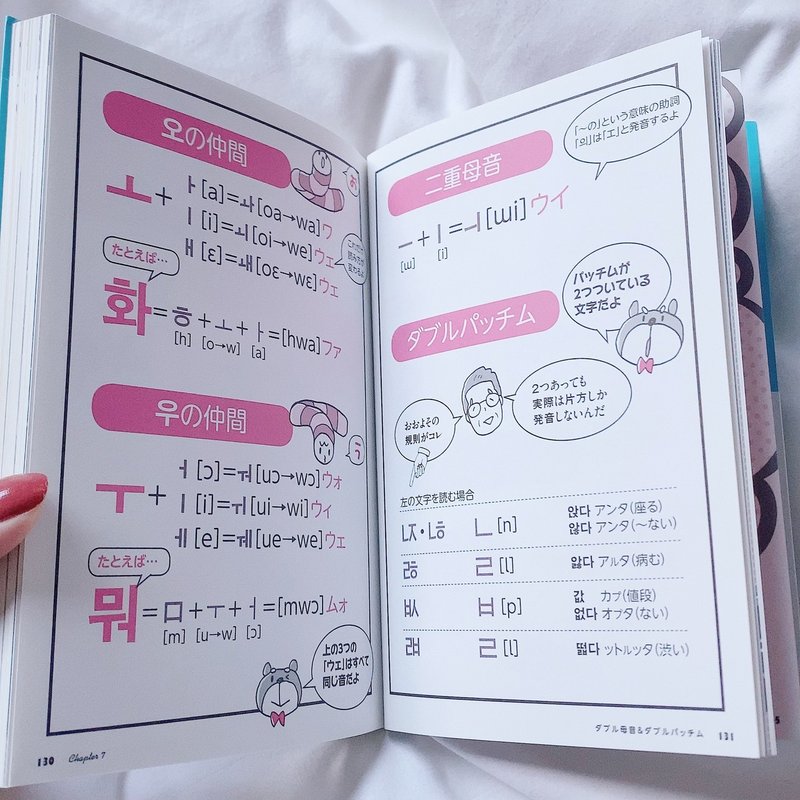 오の仲間
あ
ㅗ+
ㅏ[a]=ㅘ[oa→wa]ワ
ㅣ[i]=ㅚ[oi→we]ウェ
ㅐ[ɛ]=ㅙ[oɛ→wɛ]ウェ
たとえば…
화=ㅎ+ㅗ+ㅏ=[hwa]ファ
[h] [o→w] [a]
우の仲間
う
ㅜ+
ㅓ[ɔ]=ㅝ[uɔ→wɔ]ウォ
ㅣ[i]=ㅟ[ui→wi]ウィ
ㅔ[e]=ㅞ[ue→we]ウェ
たとえば…
뭐=ㅁ+ㅜ+ㅓ=[mwɔ]ムォ
[m] [u→w] [ɔ]
上の3つの
「ウェ」はすべて
同じ音だよ
130 Chapter 7
二重母音
「〜の」という意味の助詞
「의」は「エ」と発音するよ
ㅡ+ㅣ=ㅢ[ɯi]ウイ
[ɯ] [i]
ダブルパッチム
パッチムが
2つついている
文字だよ
おおよその
規則がコレ
2つあっても
実際は片方しか
発音しないんだ
左の文字を読む場合
ㄵ・ㄶ ㄴ[n] 앉다 アンタ(座る)
않다 アンタ(〜ない)
ㅀ ㄹ[l] 앓다 アルタ(病む)
ㅄ ㅂ[p] 값 カプ(値段)
없다 オプタ(ない)
ㄼ ㄹ[l] 떫다 ットルッタ(渋い)
ダブル母音&ダブルパッチム 131